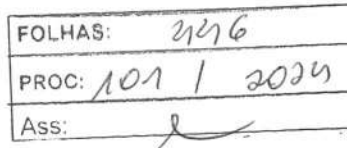 FOLHAS:
PROC: 101 / 2024
Ass: